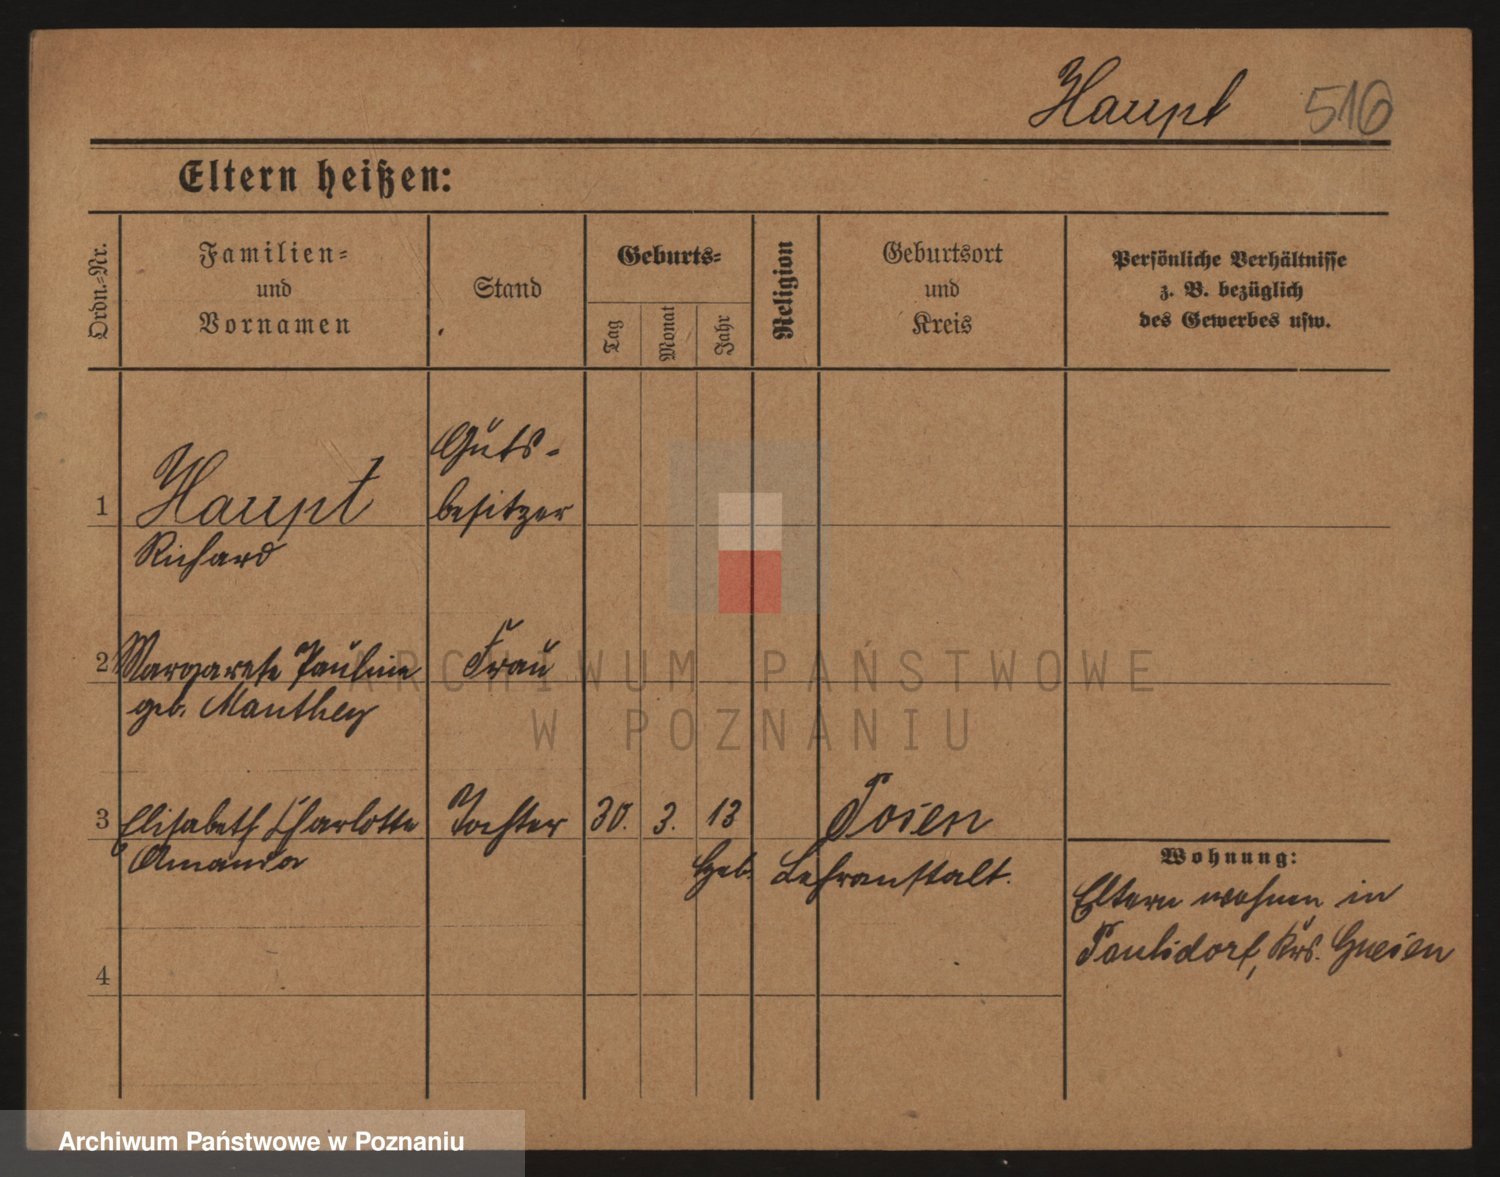 Haupt 516
Eltern heißen:
Ordn.-Nr.
Familien-
und
Vornamen
Stand
Geburts-
Tag
Monat
Jahr
Religion
Geburtsort
und
Kreis
Persönliche Verhältnisse
z. B. bezüglich
des Gewerbes usw.
Guts-
1 Haupt besitzer
Richard
2 Margarete Pauline Frau
geb. Manthey
3 Elisabeth Charlotte Tochter 30. 3. 13 Posen
Amanda Geb. Lehranstalt.
Wohnung:
Eltern wohnen in
Paulsdorf, Krs. Gnesen
4
ARCHIWUM PAŃSTWOWE
W POZNANIU
Archiwum Państwowe w Poznaniu